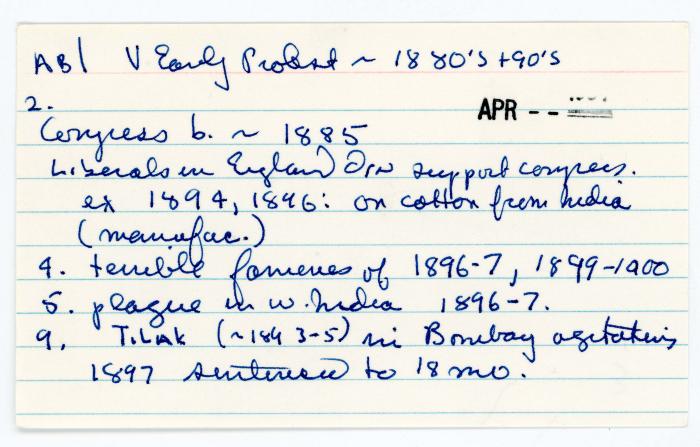 AB1 V Early Protest ~ 1880's + 90's
2.
APR - -
Congress b. ~ 1885
Liberals in England support congress.
ex 1894, 1896: on cotton from India
(manufac.)
4. terrible famenes of 1896-7, 1899-1900
5. plague in w. India 1896-7.
9. TiLAK (~1893-5) in Bombay agitating
1897 sentenced to 18 mo.